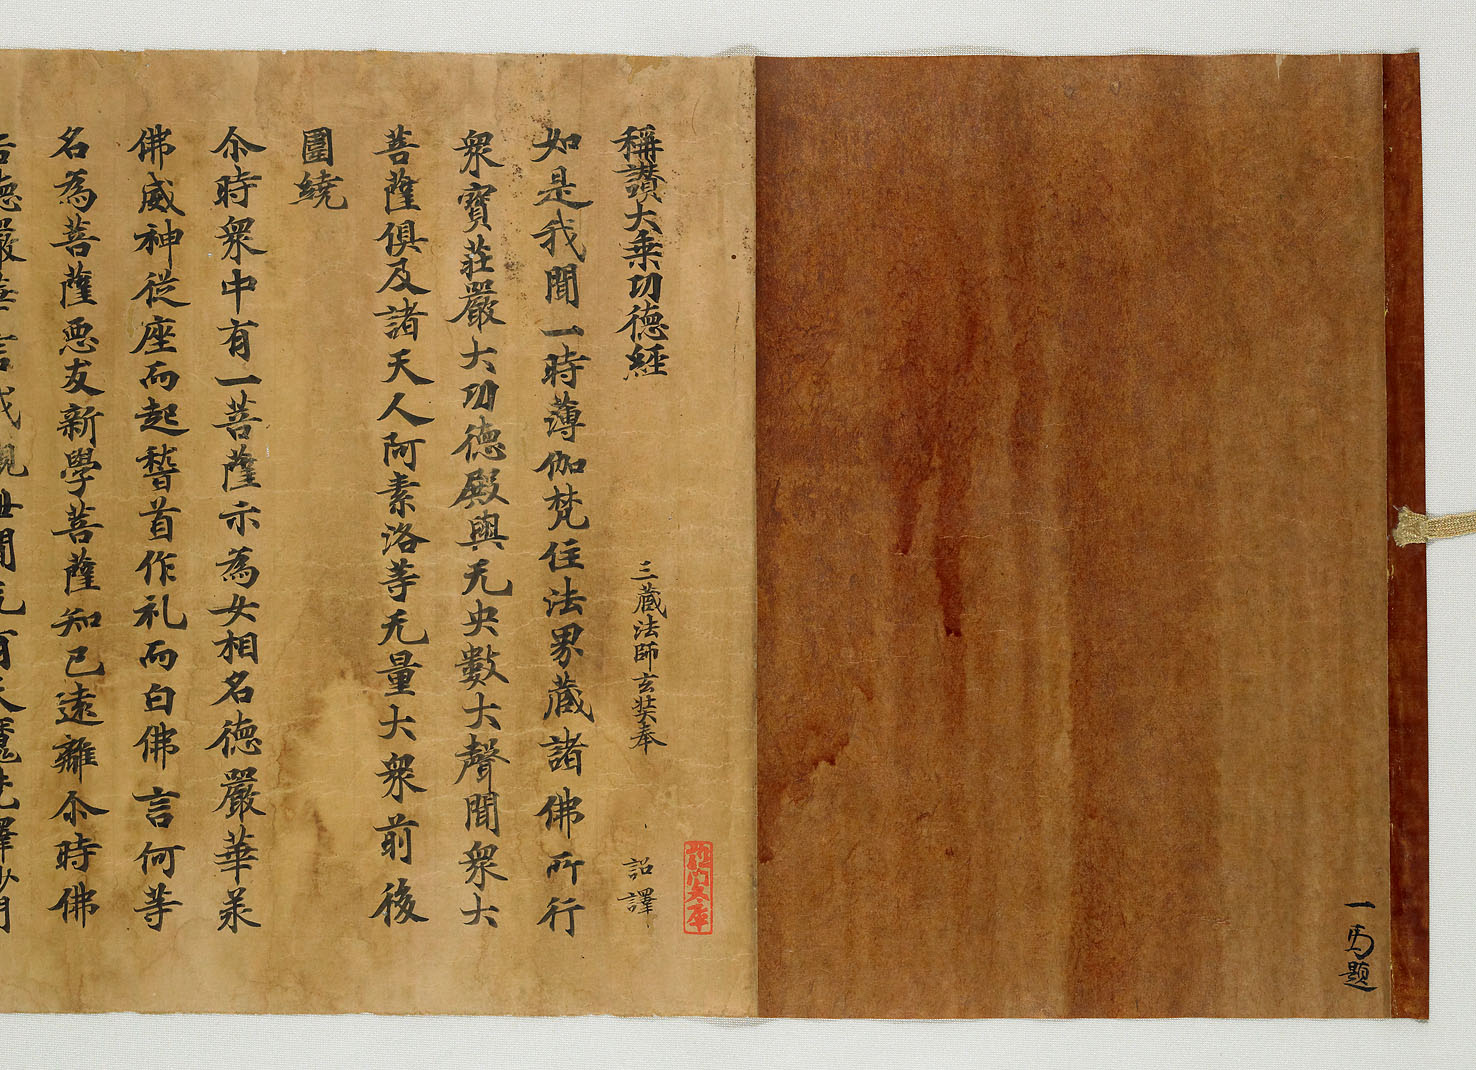 一題
内文庫
稱讃大乗功德經
三藏法師玄奘奉 詔譯
如是我聞一時薄伽梵住法界藏諸佛所行
衆寶莊嚴大功德殿與无央數大聲聞衆大
菩薩俱及諸天人阿素洛等无量大衆前後
圍繞
尒時衆中有一菩薩示為女相名德嚴華承
佛威神從座而起稽首作礼而白佛言何等
名為菩薩惡友新學菩薩知已遠離尒時佛
告德嚴華言我觀世間无有天魔梵釋沙門